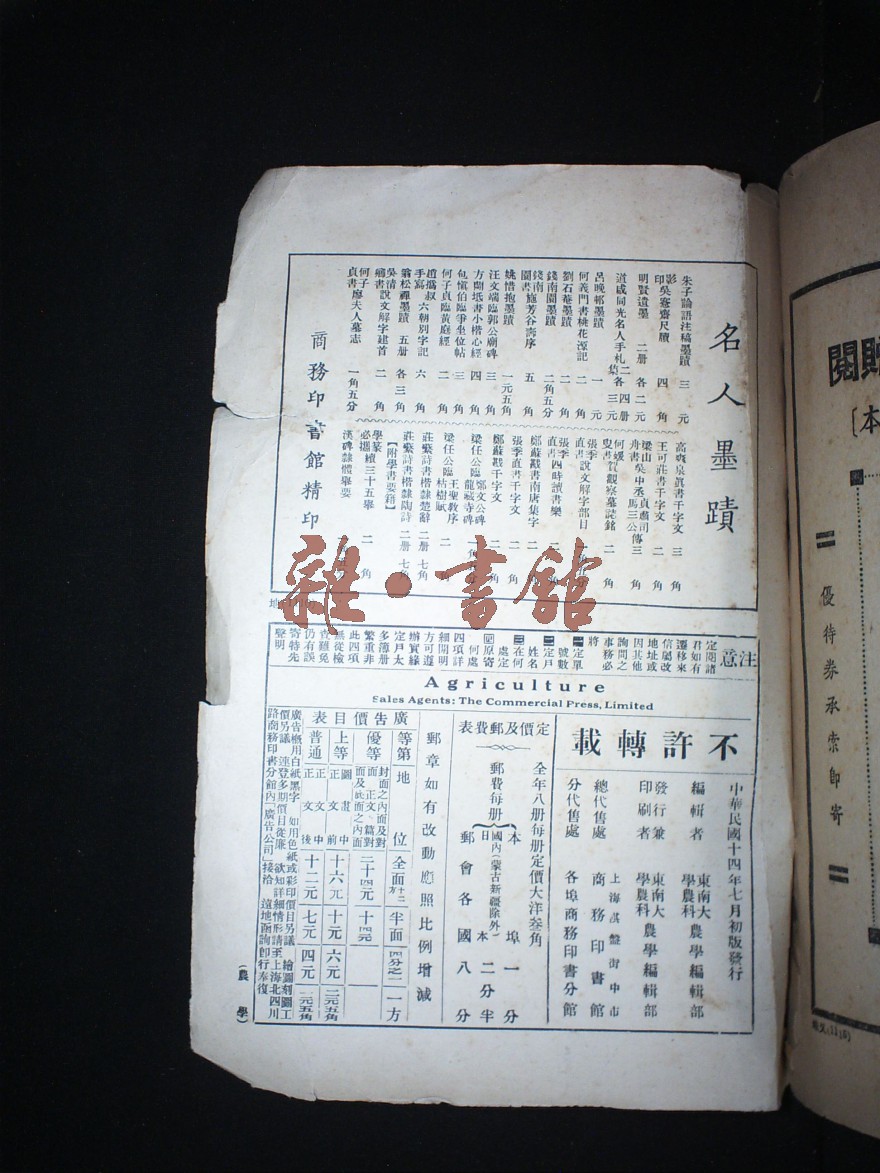 名人墨蹟
朱子論語注稿墨蹟 三元
影印吳愙齋尺牘 四角
明賢遺墨 二册 各二元
道咸同光名人手札 二集 各四册 各三元
呂晚邨墨蹟 一元
何義門書桃花源記 二角
劉石菴墨蹟 二角
錢南園墨蹟 二角五分
錢南園書施芳谷壽序 五角
姚惜抱墨蹟 一元五角
汪文端臨郭公廟碑 三角
方蘭坻書小楷心經 四角
包愼伯臨爭坐位帖 三角
何子貞臨黃庭經 二角
趙撝叔手寫六朝別字記 六角
翁松禪墨蹟 五册 各三角
吳清卿書說文解字建首 二角
何子貞書廖夫人墓志 一角五分
高爽泉眞書千字文 三角
王可莊書千字文 二角
梁山舟書吳中丞馬貞肅三公傳 三角
何媛叟書賀觀察墓誌銘 二角
張季直書說文解字部目
張季直書四時讀書樂
鄭蘇戡書南唐集字 二角
張季直書千字文 二角
鄭蘇戡千字文 二角
梁任公臨鄭文公碑
梁任公臨龍藏寺碑
梁任公臨王聖教序
枯樹賦 二角
莊繁詩書楷隸楚辭 二册 七角
莊繁詩書楷隸陶詩 二册 七角
【附學書要籍】
學篆必攜續三十五舉 二角
漢碑隸體舉要
商務印書館精印
雜·書館
注意
定閱諸君如有遷移來信屬改地址或因其他詢問之事務必將
一定單號數
二定戶姓名
三在何處定
四原寄何處
四項詳細開明方可遵辦實緣定戶太多簿册繁重非此四項無從檢查難免仍有誤寄特先聲明
Agriculture
Sales Agents: The Commercial Press, Limited
不許轉載
中華民國十四年七月初版發行
編輯者 東南大學農科農學編輯部
發行兼印刷者 東南大學農科農學編輯部
總代售處 上海棋盤街中市 商務印書館
分代售處 各埠商務印書分館
定價及郵費表
全年八册每册定價大洋叁角
郵費每册
本埠一分
國內(蒙古新疆除外)日本二分半
郵會各國八分
郵章如有改動應照比例增減
廣告價目表
等第 地位 全面 半面 四分之一 一方
優等 封面之內面及對面正文首篇對面及底面之內面 二十四元 十四元
上等 圖畫中正文前 十六元 十元 六元 二元五角
普通 正文中正文後 十二元 七元 四元 二元五角
廣告槪用白紙黑字 如用色紙或彩印價目另議 繪圖刻圖工
價另議 連登多期價目從廉 欲知詳細情形請至上海北四川
路商務印書分館內「廣告公司」接洽 遠地函詢卽行奉復
(農學)
優待券承索卽寄